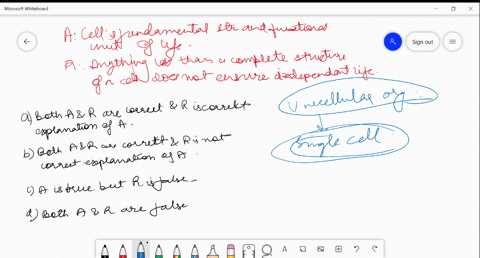 Microsoft Whiteboard
Sign out
A: Cell is fundamental str and functional
unit of life.
R: Anything less than a complete structure
of a cell does not ensure independent life.
a) Both A & R are correct & R is correct
explanation of A.
b) Both A & R are correct & R is not
correct explanation of A.
c) A is true but R is false
d) Both A & R are false
Unicellular org...
Single cell